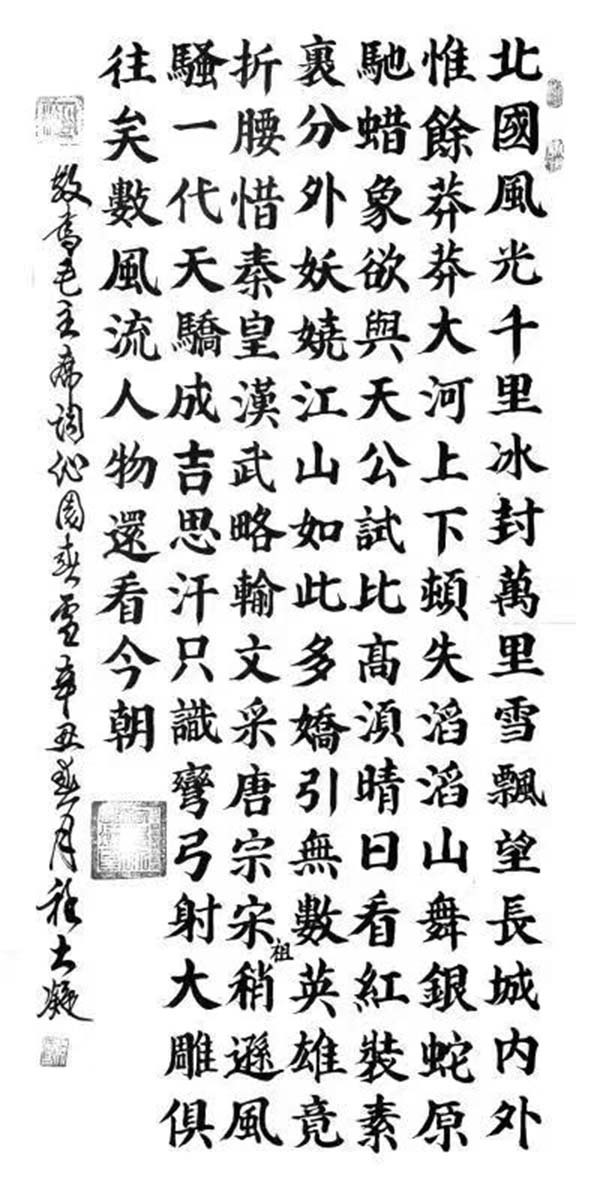 北國風光千里冰封萬里雪飄望長城內外
惟餘莽莽大河上下頓失滔滔山舞銀蛇原
馳蜡象欲與天公試比高湏晴日看紅裝素
裹分外妖嬈江山如此多嬌引無數英雄竟
折腰惜秦皇漢武略輸文采唐宗宋祖稍遜風
騷一代天驕成吉思汗只識彎弓射大雕俱
往矣數風流人物還看今朝
敬書毛主席詞沁園春雪辛丑春月大凝